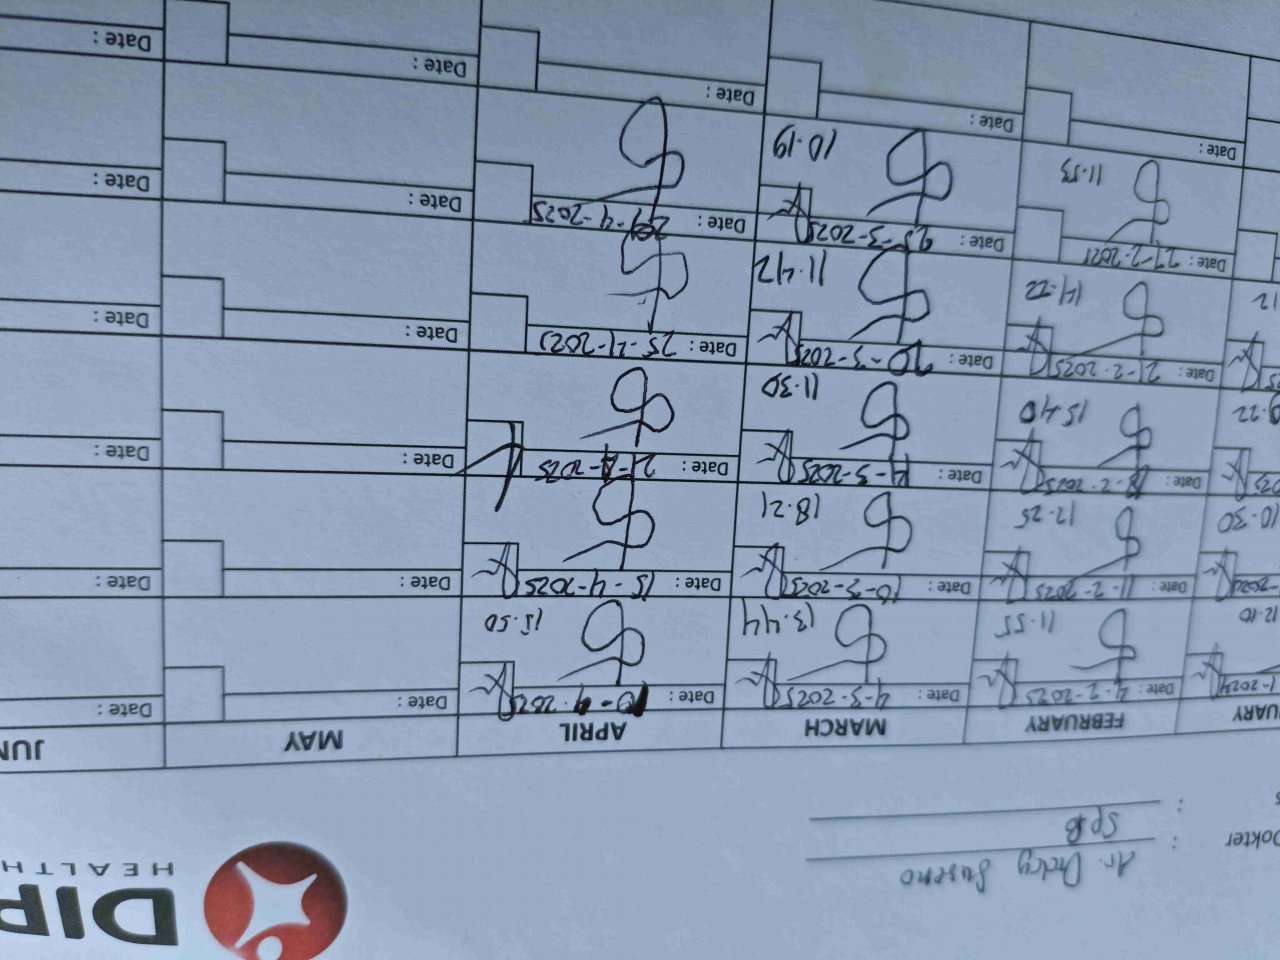 DIP
HEALTH
Dokter : dr. Suseno
: SpB
UARY FEBRUARY MARCH APRIL MAY JUN
Date : 4-2-2025 Date : 4-3-2025 Date : 10-4-2025 Date : Date :
12.10 11.55 13.44 15.50
Date : 11-2-2025 Date : 10-3-2025 Date : 15-4-2025 Date : Date :
10.30 12.25 18.21
Date : 18-2-2025 Date : 14-3-2025 Date : 21-4-2025 Date : Date :
15.40 11.30
Date : 21-2-2025 Date : 20-3-2025 Date : 25-4-2025 Date : Date :
14.22 11.42
Date : 27-2-2025 Date : 25-3-2025 Date : 29-4-2025 Date : Date :
11.53 10.19
Date : Date : Date : Date : Date :